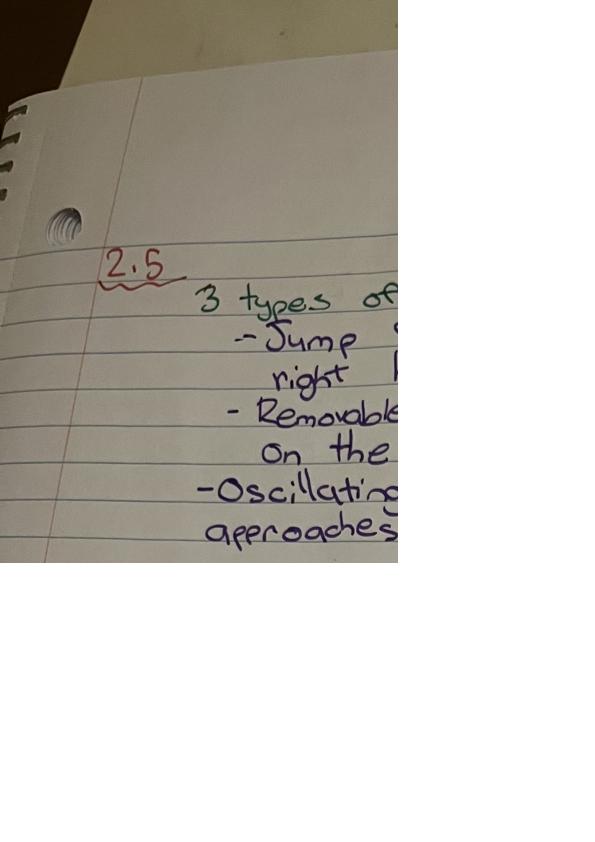 2.5
3 types of
- Jump
right
- Removable
on the
- Oscillating
approaches